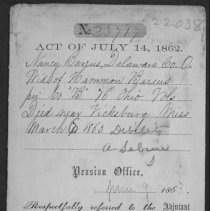 No 23717
22.038
ACT OF JULY 14, 1862.
Nancy Barcus, Delaware Co. O.
Wid of Hammon Barcus
pri Co "B" Ohio Vols
Died near Vicksburg Miss
March 1863
Pension Office,
June 9, 186
Respectfully referred to the Adjutant